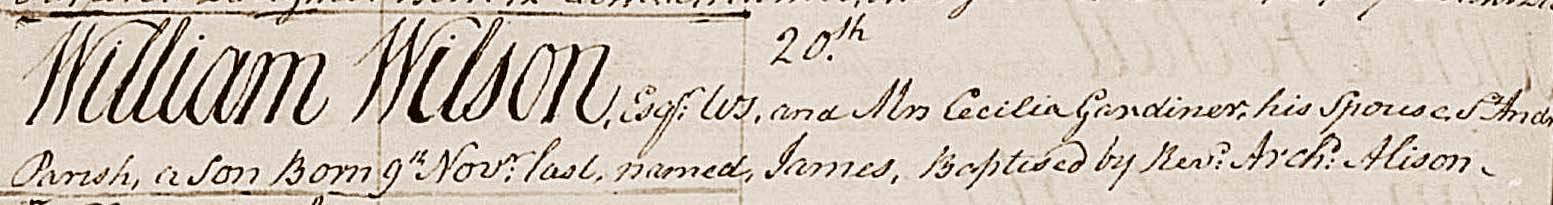 20th.
William Wilson, Esqr. WS, and Mrs Cecilia Gardiner, his Spouse, St And
Parish, a Son Born 9th Novr. last, named, James, Baptised by Revd. Archd. Alison